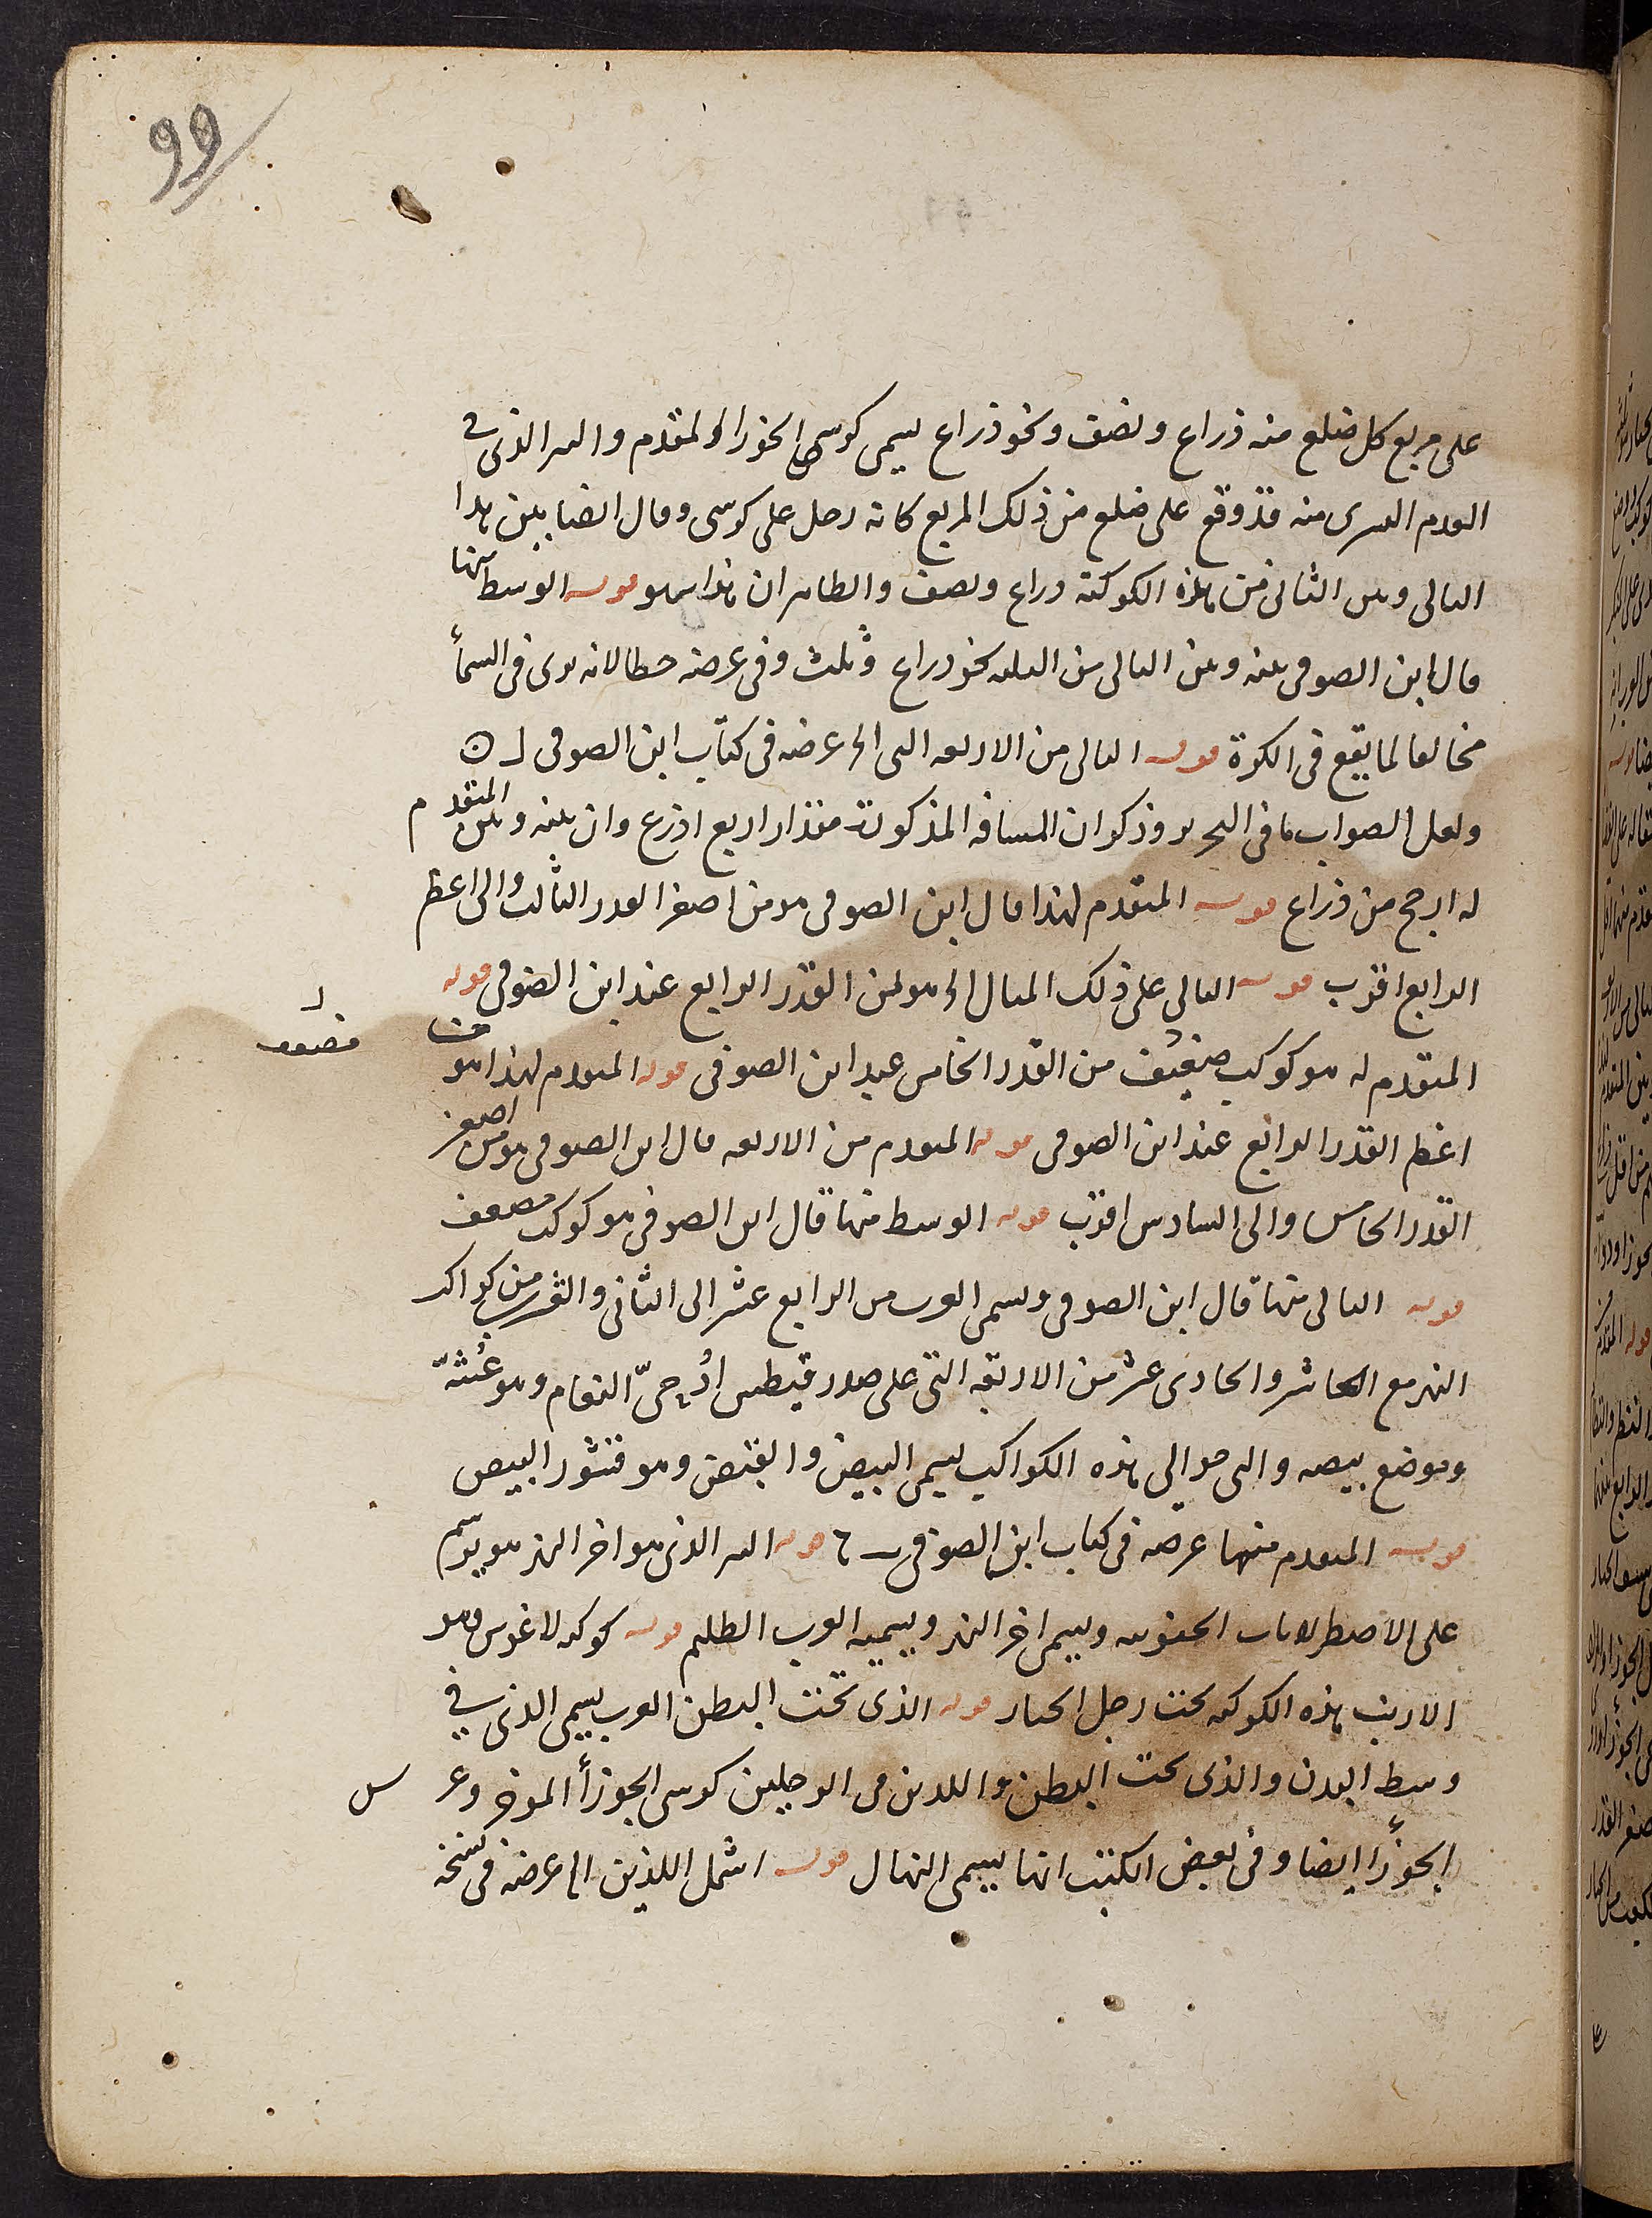 99
على مربع كل ضلع منه ذراع ونصف ونحو ذراع يسمى كرسى الجوزا المقدم والنير الذى فى
القدم اليسرى منه قد وقع على ضلع من ذلك المربع كانه رجل على كرسى وقال ايضا بين هذا
التالى وبين الثانى من هذه الكوكبة ذراع ونصف والظاهر ان هذا سهو قوله الوسط منها
قال ابن الصوفى بينه وبين التالى من الثلثه نحو ذراع وثلث وفى عرضه خطا لانه يرى فى السماء
مخالفا لما يقع فى الكرة قوله التالى من الاربعه التى الخ عرضه فى كتاب ابن الصوفى
ولعل الصواب ما فى التحرير وذكر ان المسافة المذكورة مقدار اربع اذرع وان بينه وبين المتقدم
له ارجح من ذراع قوله المتقدم لهذا قال ابن الصوفى هو من اصغر القدر الثالث والى اعظم
الرابع اقرب قوله التالى على ذلك المثال الخ هو من القدر الرابع عند ابن الصوفى قوله
المتقدم له هو كوكب ضعيف من القدر الخامس عند ابن الصوفى قوله المتقدم لهذا هو من
اعظم القدر الرابع عند ابن الصوفى قوله المتقدم من الاربعه قال ابن الصوفى هو من اصغر
القدر الخامس والى السادس اقرب قوله الوسط منها قال ابن الصوفى هو كوكب مضعف
قوله التالى منها قال ابن الصوفى ويسمى العرب من الرابع عشر الى الثانى والعشرين من كواكب
النهر مع العاشر والحادى عشر من الاربعة التى على صدر قيطس اُدْحِىّ النعام وهو عُشّه
وموضع بيضه والتى حوالى هذه الكواكب يسمى البيض والقيض وهو قشور البيض
قوله المتقدم منها عرضه فى كتاب ابن الصوفى قوله النير الذى هو اخر النهر هو يرسم
على الاصطرلابات الجنوبيه ويسمى اخر النهر ويسميه العرب الظليم قوله كوكبه لاغوس وهو
الارنب هذه الكوكبه تحت رجل الجبار قوله الذى تحت البطن العرب يسمى الذى فى
وسط البدن والذى تحت البطن واللذين فى الرجلين كرسى الجوزاء الموخر وعرش
الجوزاء ايضا وفى بعض الكتب انها يسمى النهال قوله اشمل اللذين الخ عرضه فى نسخه